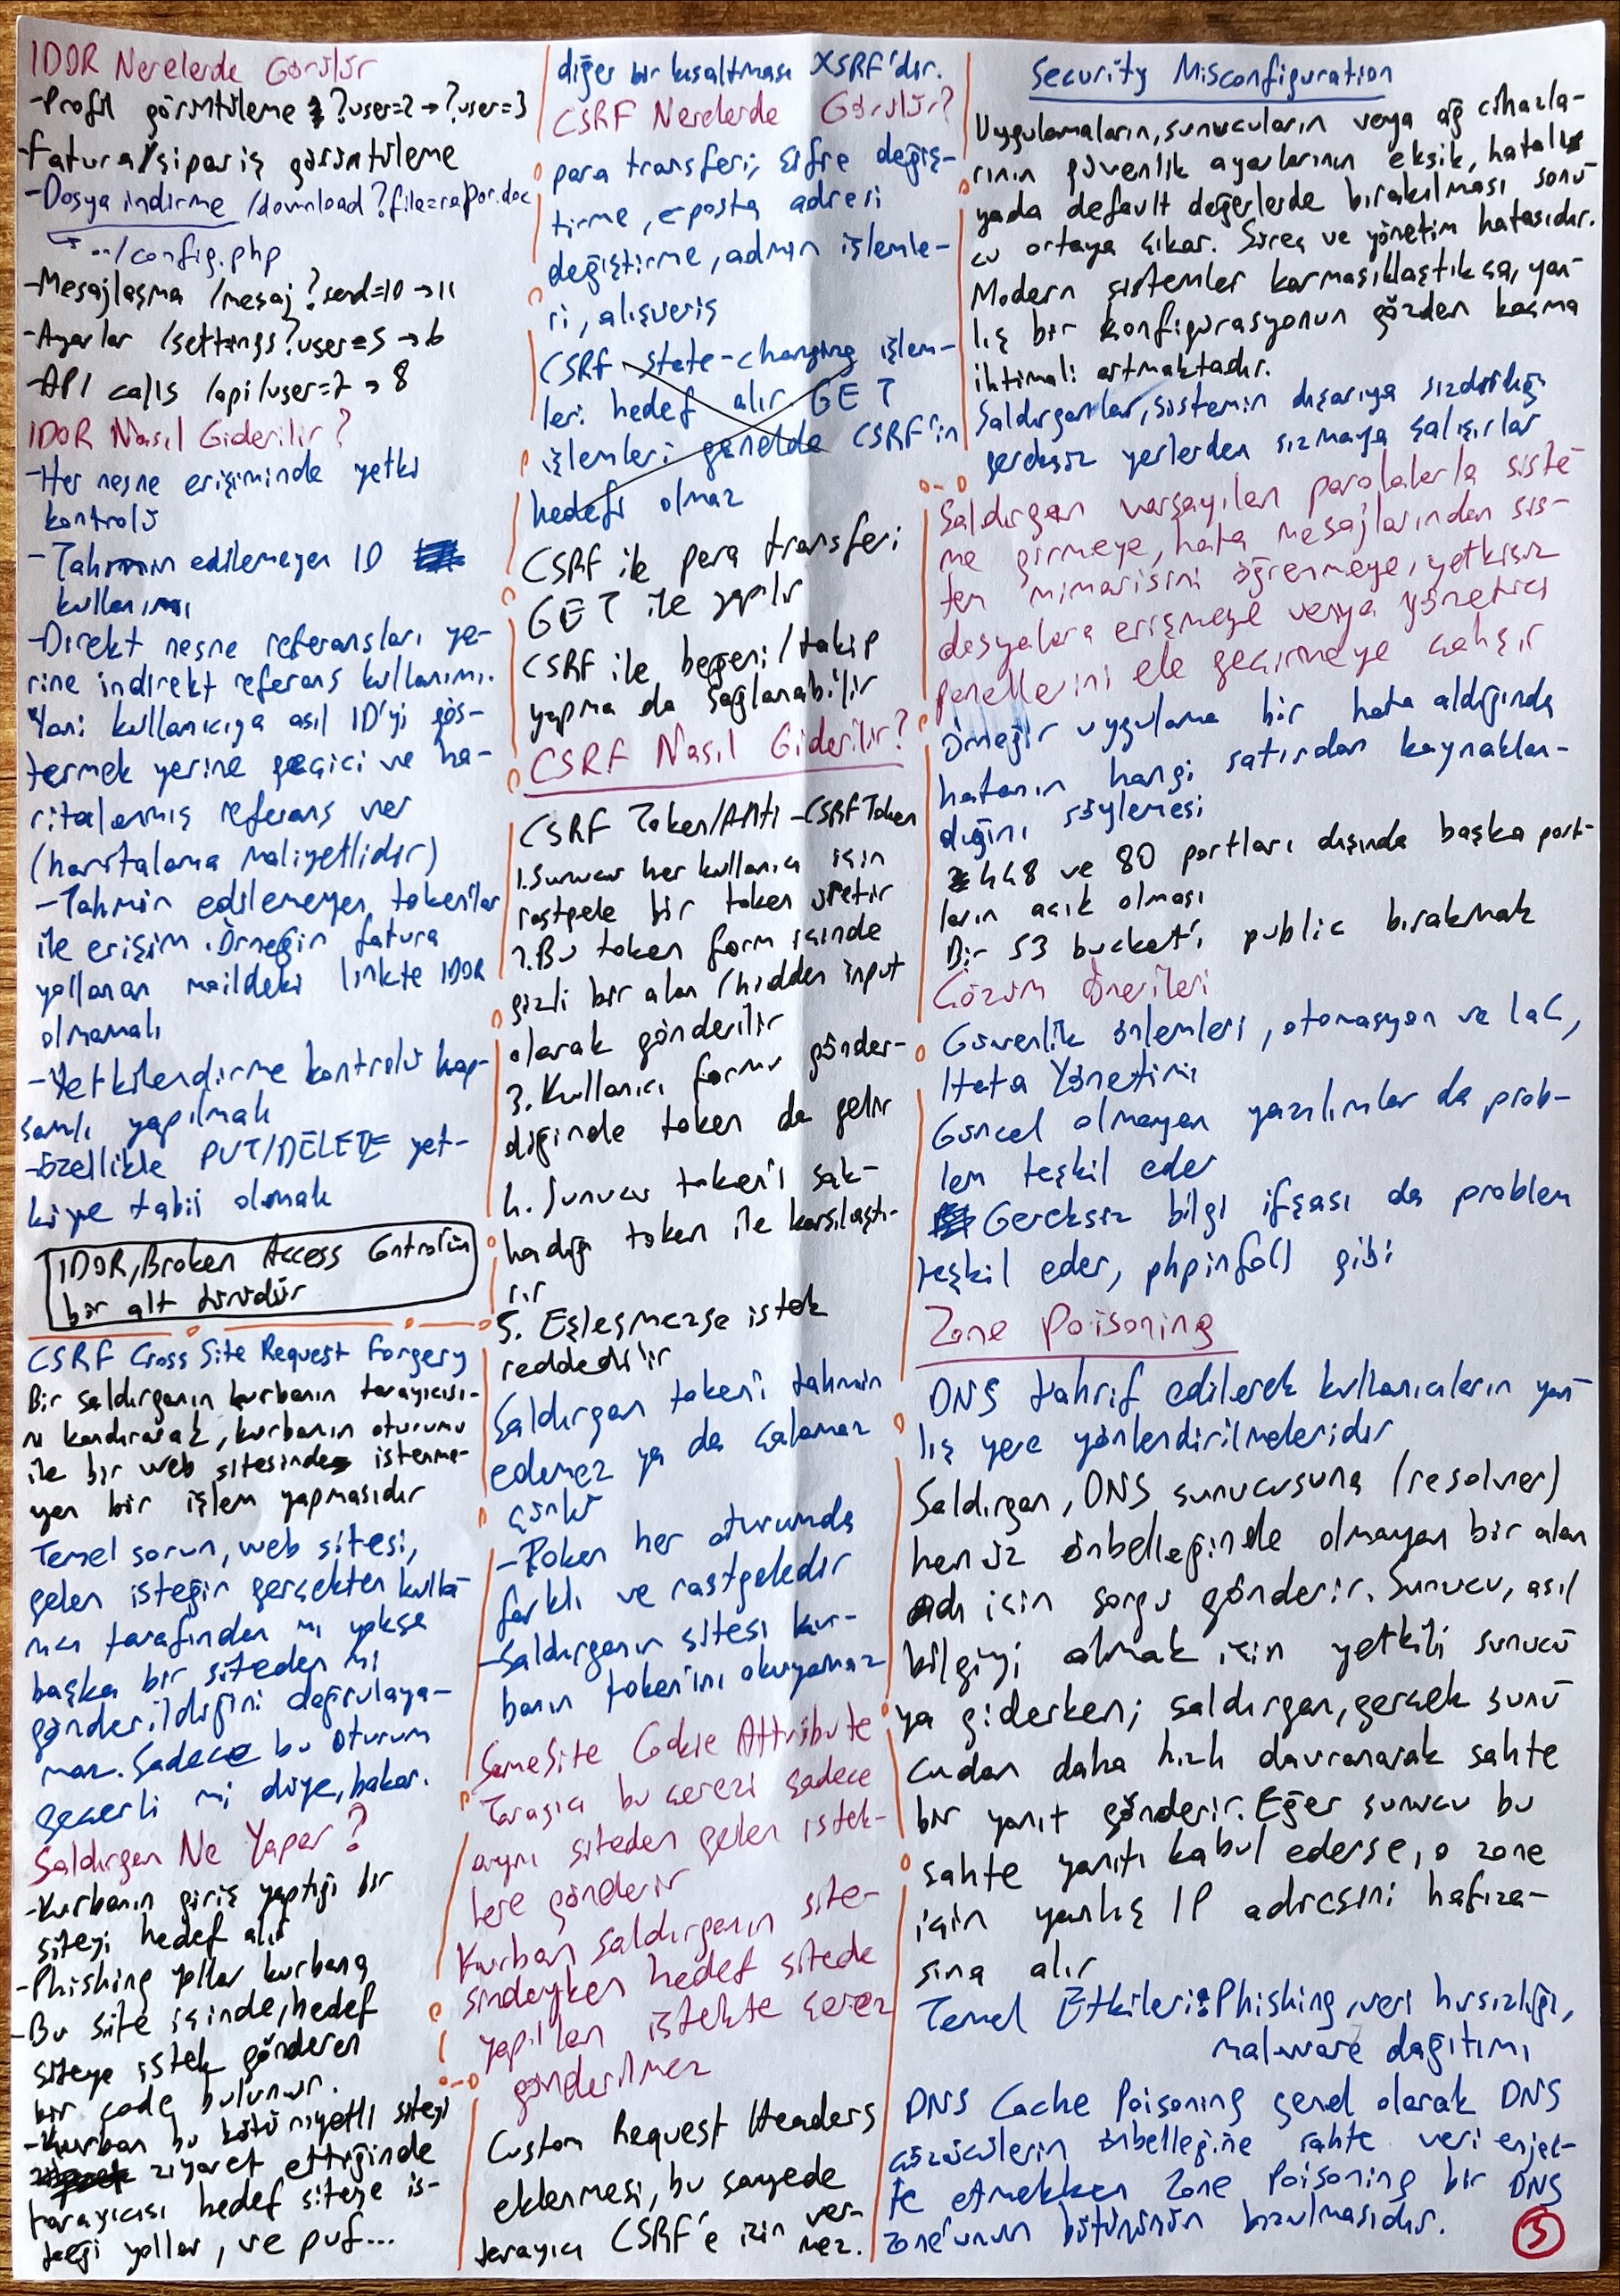 IDOR Nerelerde Görülür
-Profil görüntüleme ?user=2 → ?user=3
-Fatura/sipariş görüntüleme
-Dosya indirme /download?file=rapor.doc
../config.php
-Mesajlaşma /mesaj?send=10 → 11
-Ayarlar /settings?user=5 → 6
-API calls /api/user=7 → 8
IDOR Nasıl Giderilir?
-Her nesne erişiminde yetki
kontrolü
-Tahmin edilemeyen ID
kullanımı
-Direkt nesne referansları ye-
rine indirekt referans kullanımı.
Yani kullanıcıya asıl ID'yi gös-
termek yerine geçici ve ha-
ritalanmış referans ver
(haritalama maliyetlidir)
-Tahmin edilemeyen tokenlar
ile erişim. Örneğin fatura
yollanan maildeki linkte IDOR
olmamalı
-Yetkilendirme kontrolü kap-
samlı yapılmalı
-özellikle PUT/DELETE yet-
kiye tabii olmalı
IDOR, Broken Access Control'ün
bir alt türüdür
CSRF Cross Site Request Forgery
Bir saldırganın kurbanın tarayıcısı-
nı kandırarak, kurbanın oturumu
ile bir web sitesinde istenme-
yen bir işlem yapmasıdır
Temel sorun, web sitesi,
gelen isteğin gerçekten kulla-
nıcı tarafından mı yoksa
başka bir siteden mi
gönderildiğini doğrulaya-
maz. Sadece bu oturum
geçerli mi diye, bakar.
Saldırgan Ne Yapar?
-Kurbanın giriş yaptığı bir
siteyi hedef alır
-Phishing yollar kurbana
-Bu site içinde, hedef
siteye istek gönderen
bir code bulunur.
-Kurban bu kötü niyetli siteyi
ziyaret ettiğinde
tarayıcısı hedef siteye is-
teği yollar, ve puf...
diğer bir kısaltması XSRF'dir.
CSRF Nerelerde Görülür?
para transferi, şifre değiş-
tirme, e-posta adresi
değiştirme, admin işlemle-
ri, alışveriş
CSRF state-changing işlem-
leri hedef alır. GET
işlemleri genelde CSRF'in
hedefi olmaz
CSRF ile para transferi
GET ile yapılır
CSRF ile beğeni/takip
yapma da sağlanabilir
CSRF Nasıl Giderilir?
CSRF Token/Anti-CSRF Token
1.Sunucu her kullanıcı için
rastgele bir token üretir
2.Bu token form içinde
gizli bir alan (hidden input
olarak gönderilir
3.Kullanıcı formu gönder-
diğinde token da gelir
4. Sunucu token'ı sak-
ladığı token ile karşılaştı-
rır
5. Eşleşmezse istek
reddedilir
Saldırgan token'ı tahmin
edemez ya da çalamaz
çünkü
-Token her oturumda
farklı ve rastgeledir
-Saldırganın sitesi kur-
banın token'ını okuyamaz
SameSite Cookie Attribute
Tarayıcı bu çerezi sadece
aynı siteden gelen istek-
lere gönderir
Kurban saldırganın site-
sindeyken hedef sitede
yapılan istekte çerez
gönderilmez
Custom Request Headers
eklenmesi, bu sayede
tarayıcı CSRF'e izin ver-
mez.
Security Misconfiguration
Uygulamaların, sunucuların veya ağ cihazla-
rının güvenlik ayarlarının eksik, hatalı
yada default değerlerde bırakılması sonu-
cu ortaya çıkar. Süreç ve yönetim hatasıdır.
Modern sistemler karmaşıklaştıkça, yan-
lış bir konfigürasyonun gözden kaçma
ihtimali artmaktadır.
Saldırganlar, sistemin dışarıya sızdırdığı
gereksiz yerlerden sızmaya çalışırlar
Saldırgan varsayılan parolalarla siste-
me girmeye, hata mesajlarından sis-
tem mimarisini öğrenmeye, yetkisiz
dosyalara erişmeye veya yönetici
panellerini ele geçirmeye çalışır
Örneğin uygulama bir hata aldığında
hatanın hangi satırdan kaynaklan-
dığını söylemesi
448 ve 80 portları dışında başka port-
ların açık olması
Bir S3 bucket'ı public bırakmak
Çözüm Önerileri
Güvenlik önlemleri, otomasyon ve IaC,
Hata Yönetimi
Güncel olmayan yazılımlar da prob-
lem teşkil eder
Gereksiz bilgi ifşası da problem
teşkil eder, phpinfo() gibi
Zone Poisoning
DNS tahrif edilerek kullanıcıların yan-
lış yere yönlendirilmeleridir
Saldırgan, DNS sunucusuna (resolver)
henüz önbelleğinde olmayan bir alan
adı için sorgu gönderir. Sunucu, asıl
bilgiyi almak için yetkili sunucu-
ya giderken; saldırgan, gerçek sunu-
cudan daha hızlı davranarak sahte
bir yanıt gönderir. Eğer sunucu bu
sahte yanıtı kabul ederse, o zone
için yanlış IP adresini hafıza-
sına alır
Temel Etkileri: Phishing, veri hırsızlığı,
malware dağıtımı
DNS Cache Poisoning genel olarak DNS
çözücülerin önbelleğine sahte veri enjek-
te etmekken Zone Poisoning bir DNS
zone'unun bütününün bozulmasıdır.
5